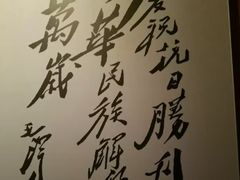 慶祝抗日勝利
中華民族解
萬歲